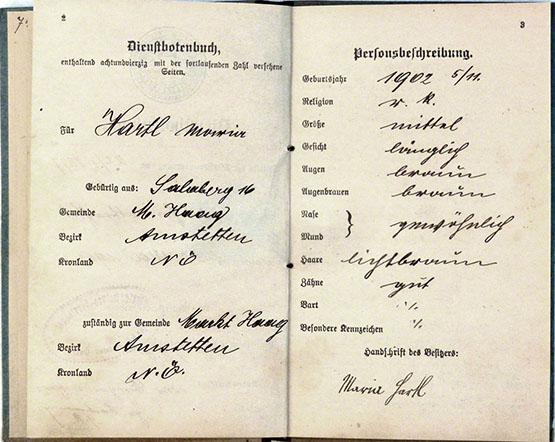 7.
2
Dienstbotenbuch,
enthaltend achtundvierzig mit der fortlaufenden Zahl versehene
Seiten.
Für Hartl Maria
Gebürtig aus: Salaberg 16
Gemeinde M. Haag
Bezirk Amstetten
Kronland N Ö
zuständig zur Gemeinde Markt Haag
Bezirk Amstetten
Kronland N.Ö.
3
Personsbeschreibung.
Geburtsjahr 1902 5/11.
Religion r. k.
Größe mittel
Gesicht länglich
Augen braun
Augenbrauen braun
Nase
Mund } gewöhnlich
Haare lichtbraun
Zähne gut
Bart ./.
Besondere Kennzeichen ./.
Handschrift des Besitzers:
Maria Hartl